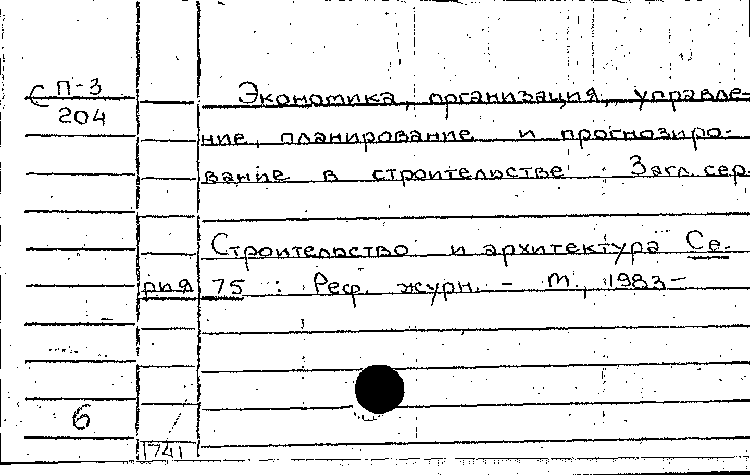 С П-3
204
Экономика, организация, управле-
ние, планирование и прогнозиро-
вание в строительстве. Загл. сер.
Строительство и архитектура Се-
рия 75 : Реф. журн. - М., 1983-
6
1741